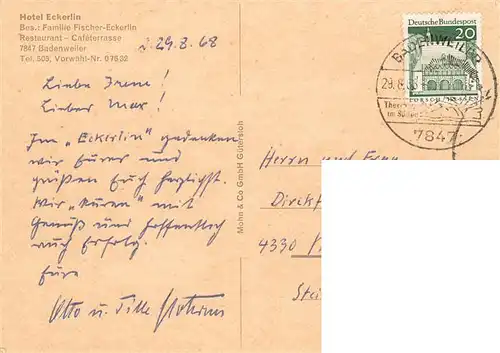 Hotel Eckerlin
Bes.: Familie Fischer-Eckerlin
Restaurant - Caféterrasse
7847 Badenweiler
Tel. 509, Vorwähl-Nr. 07632
29.8.68
Liebe Irene!
Lieber Max!
Im „Eckerlin" gedenken
wir Eurer und
grüßen Euch herzlichst.
Wir „kuren" mit
Genuß und hoffentlich
auch Erfolg.
Eure
Otto u. Tilla
Mohn & Co GmbH Gütersloh
Deutsche Bundespost
20
LORSCH/HESSEN
BADENWEILER
29.8.68
7847
Herrn und Frau
4330